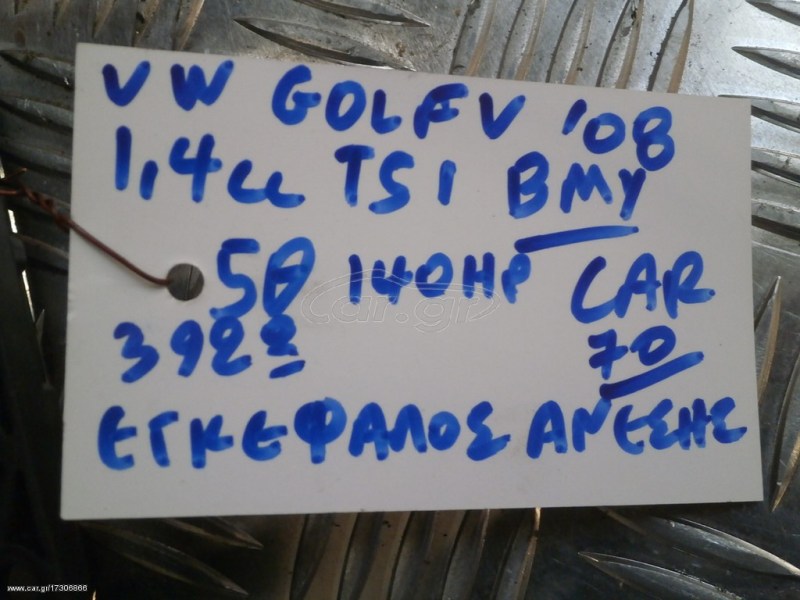 VW GOLF V '08
1,4cc TSI BMY
5θ 140HP CAR
3922 70
ΕΓΚΕΦΑΛΟΣ ΑΝΕΣΗΣ
car.gr
www.car.gr/17306866